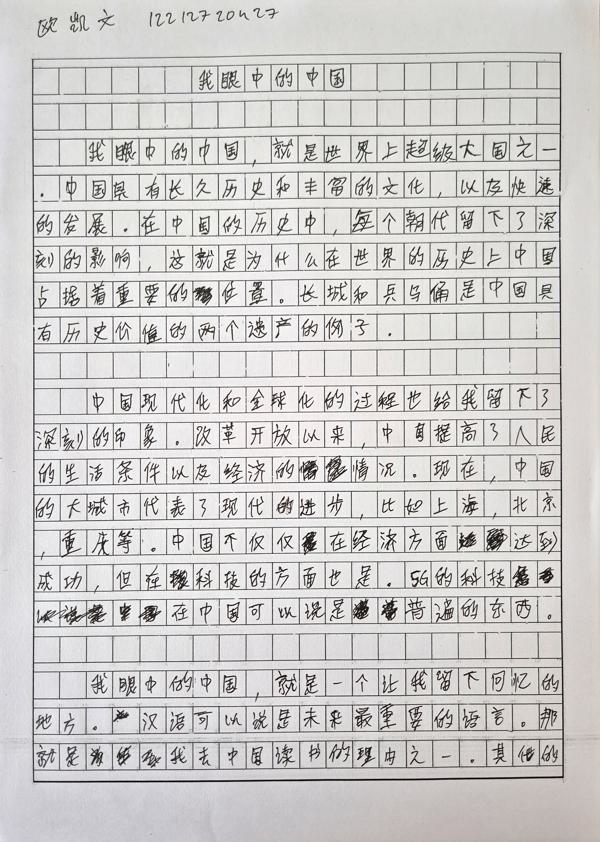 欧凯文 12212720427
我眼中的中国
我眼中的中国，就是世界上超级大国之一
.中国具有长久历史和丰富的文化，以及快速
的发展.在中国的历史中，每个朝代留下了深
刻的影响，这就是为什么在世界的历史上中国
占据着重要的位置。长城和兵马俑是中国具
有历史价值的两个遗产的例子.
中国现代化和全球化的过程也给我留下了
深刻的印象。改革开放以来，中国提高了人民
的生活条件以及经济的情况.现在，中国
的大城市代表了现代的进步，比如上海，北京
，重庆等.中国不仅仅在经济方面达到
成功，但在科技的方面也是.5G的科技
在中国可以说是普遍的东西。
我眼中的中国，就是一个让我留下回忆的
地方。汉语可以说是未来最重要的语言。那
就是我去中国读书的理由之一.其他的